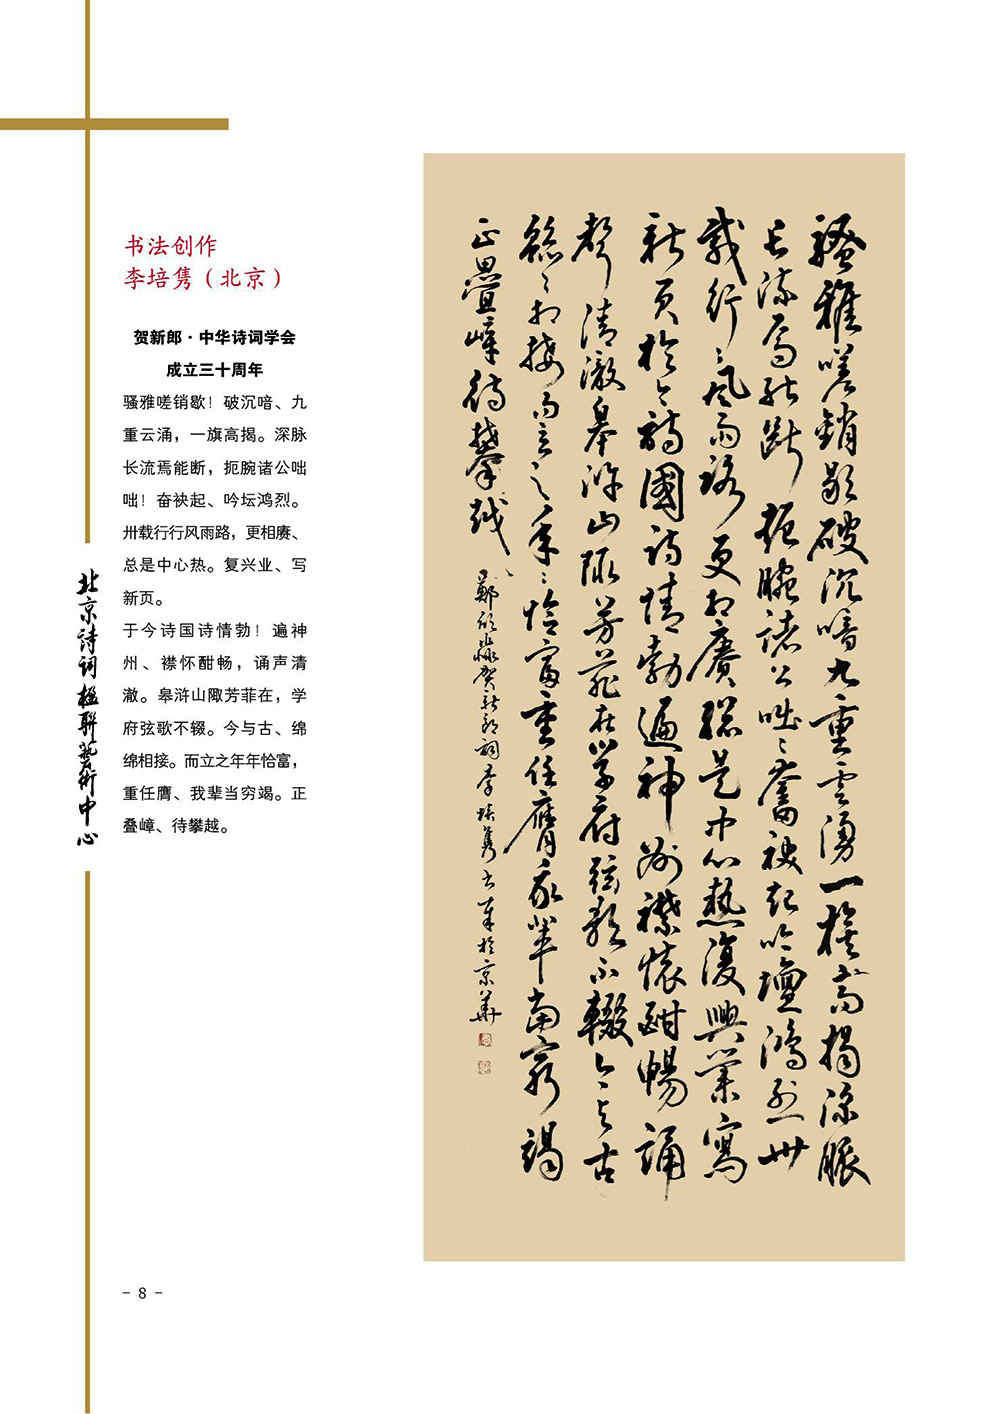 书法创作
李培隽（北京）
贺新郎·中华诗词学会
成立三十周年
骚雅嗟销歇！破沉喑、九
重云涌，一旗高揭。深脉
长流焉能断，扼腕诸公咄
咄！奋袂起、吟坛鸿烈。
卅载行行风雨路，更相赓、
总是中心热。复兴业、写
新页。
于今诗国诗情勃！遍神
州、襟怀酣畅，诵声清
澈。皋浒山陬芳菲在，学
府弦歌不辍。今与古、绵
绵相接。而立之年年恰富，
重任膺、我辈当穷竭。正
叠嶂、待攀越。
北京诗词楹联艺术中心
骚雅嗟销歇破沉喑九重云涌一旗高揭深脉
长流焉能断扼腕诸公咄〻奮袂起吟壇鸿烈卅
载行〻风雨路更相赓總是中心热復興業寫
新页於今诗國诗情勃遍神州襟懷酣暢誦
声清澈皋浒山陬芳菲在学府弦歌不辍今与古
綿〻相接而立之年〻恰富重任膺我辈當窮竭
正疊嶂待攀越
鄭欣淼贺新郎词李培隽书于京華
- 8 -